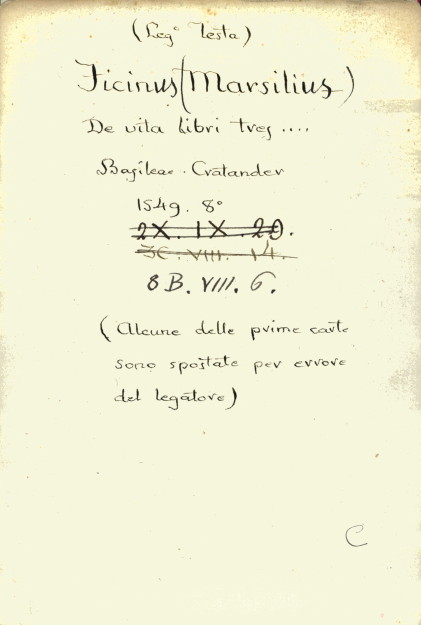 (Leg° Testa)
Ficinus (Marsilius)
De vita libri tres ....
Basileae. Cratander
1549. 8°
2X. IX. 20.
3C. VIII. 14.
8 B. VIII. 6.
(Alcune delle prime carte
sono spostate per errore
del legatore)
C